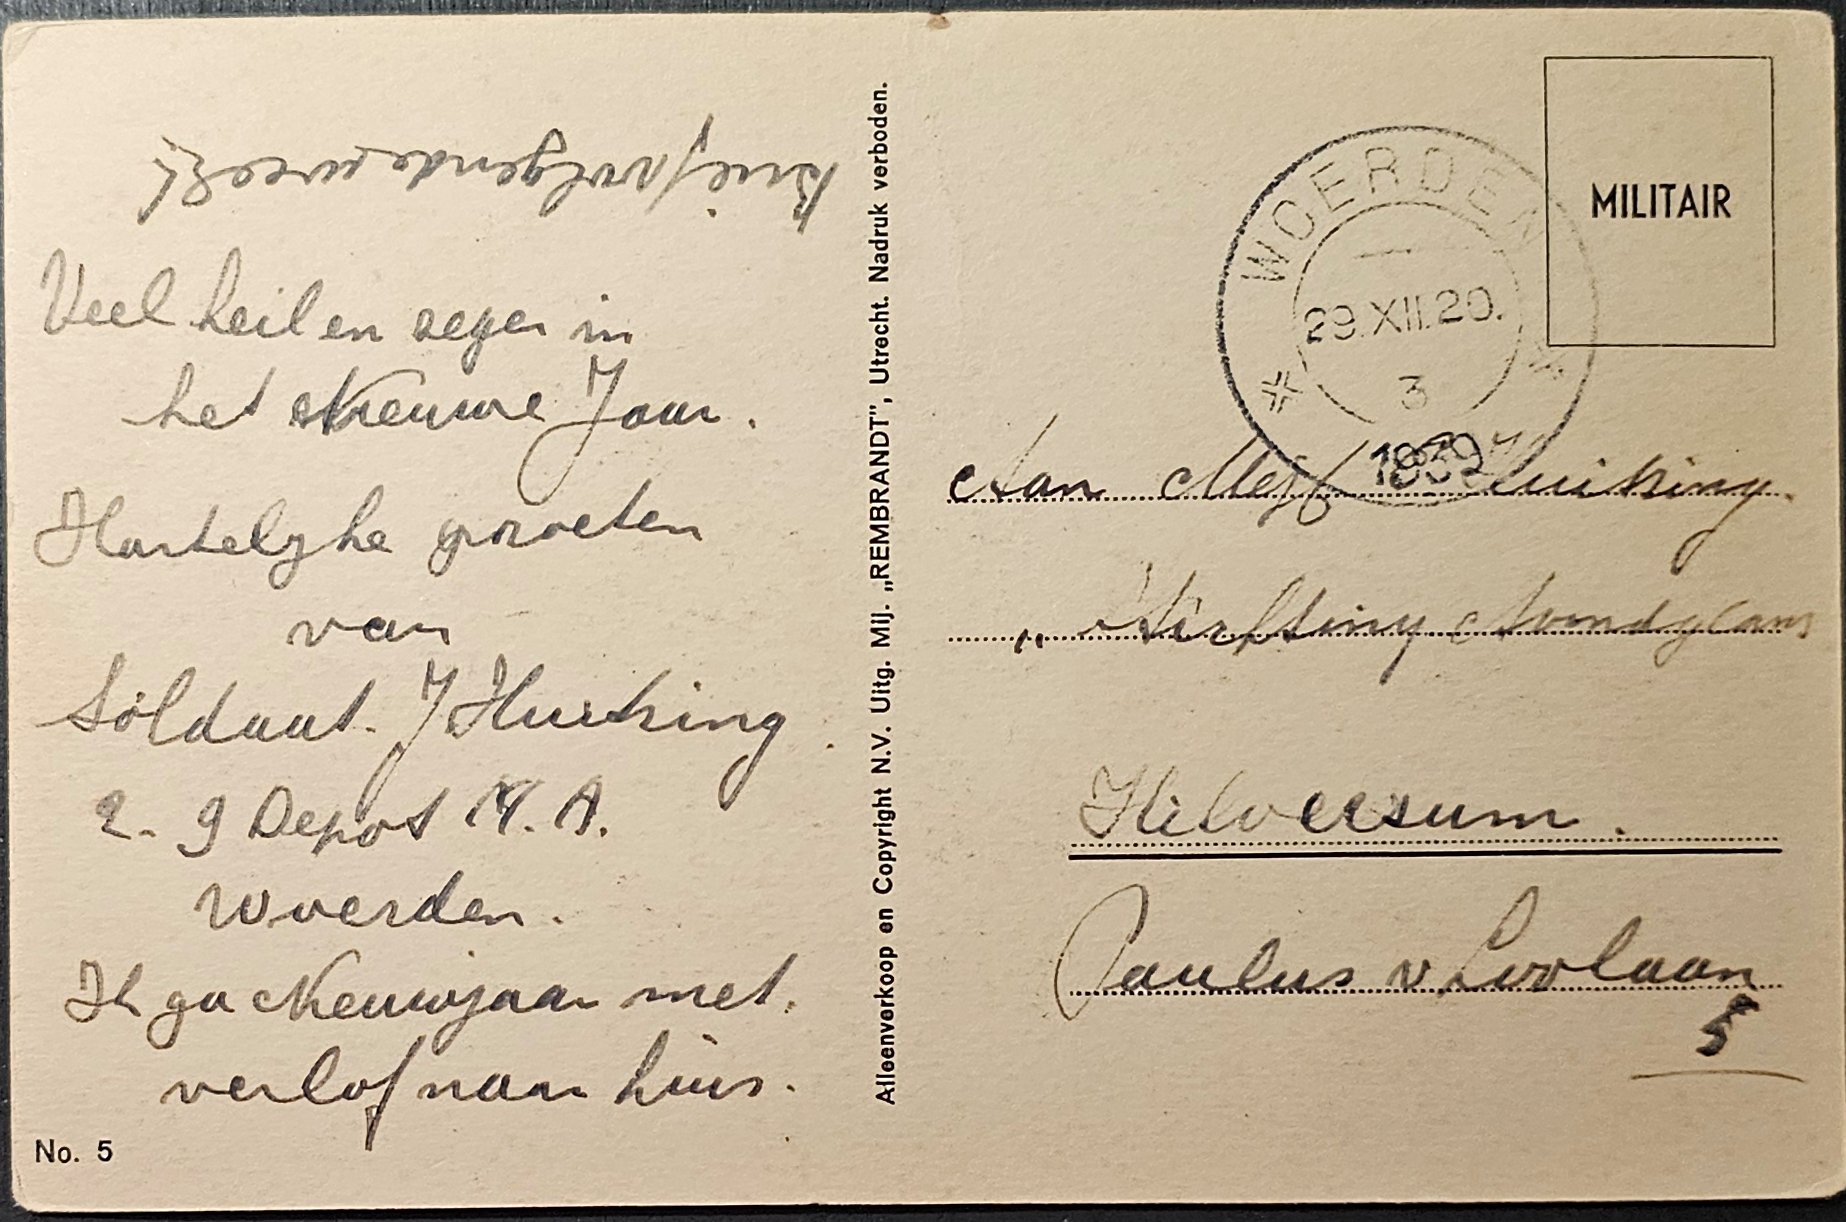 Brief volgende week!
Veel heil en zegen in
het Nieuwe Jaar.
Hartelyke groeten
van
Soldaat. J Huiking
2. 9 Depot M.A.
Woerden.
Ik ga Nieuwjaar met
verlof naar huis.
No. 5
Alleenverkoop en Copyright N.V. Uitg. Mij. „REMBRANDT”, Utrecht. Nadruk verboden.
MILITAIR
WOERDEN
29.XII.20.
3
1939
Aan Mej Huiking.
„ Stichting Avondglans
Hilversum.
Paulus v Loolaan
5